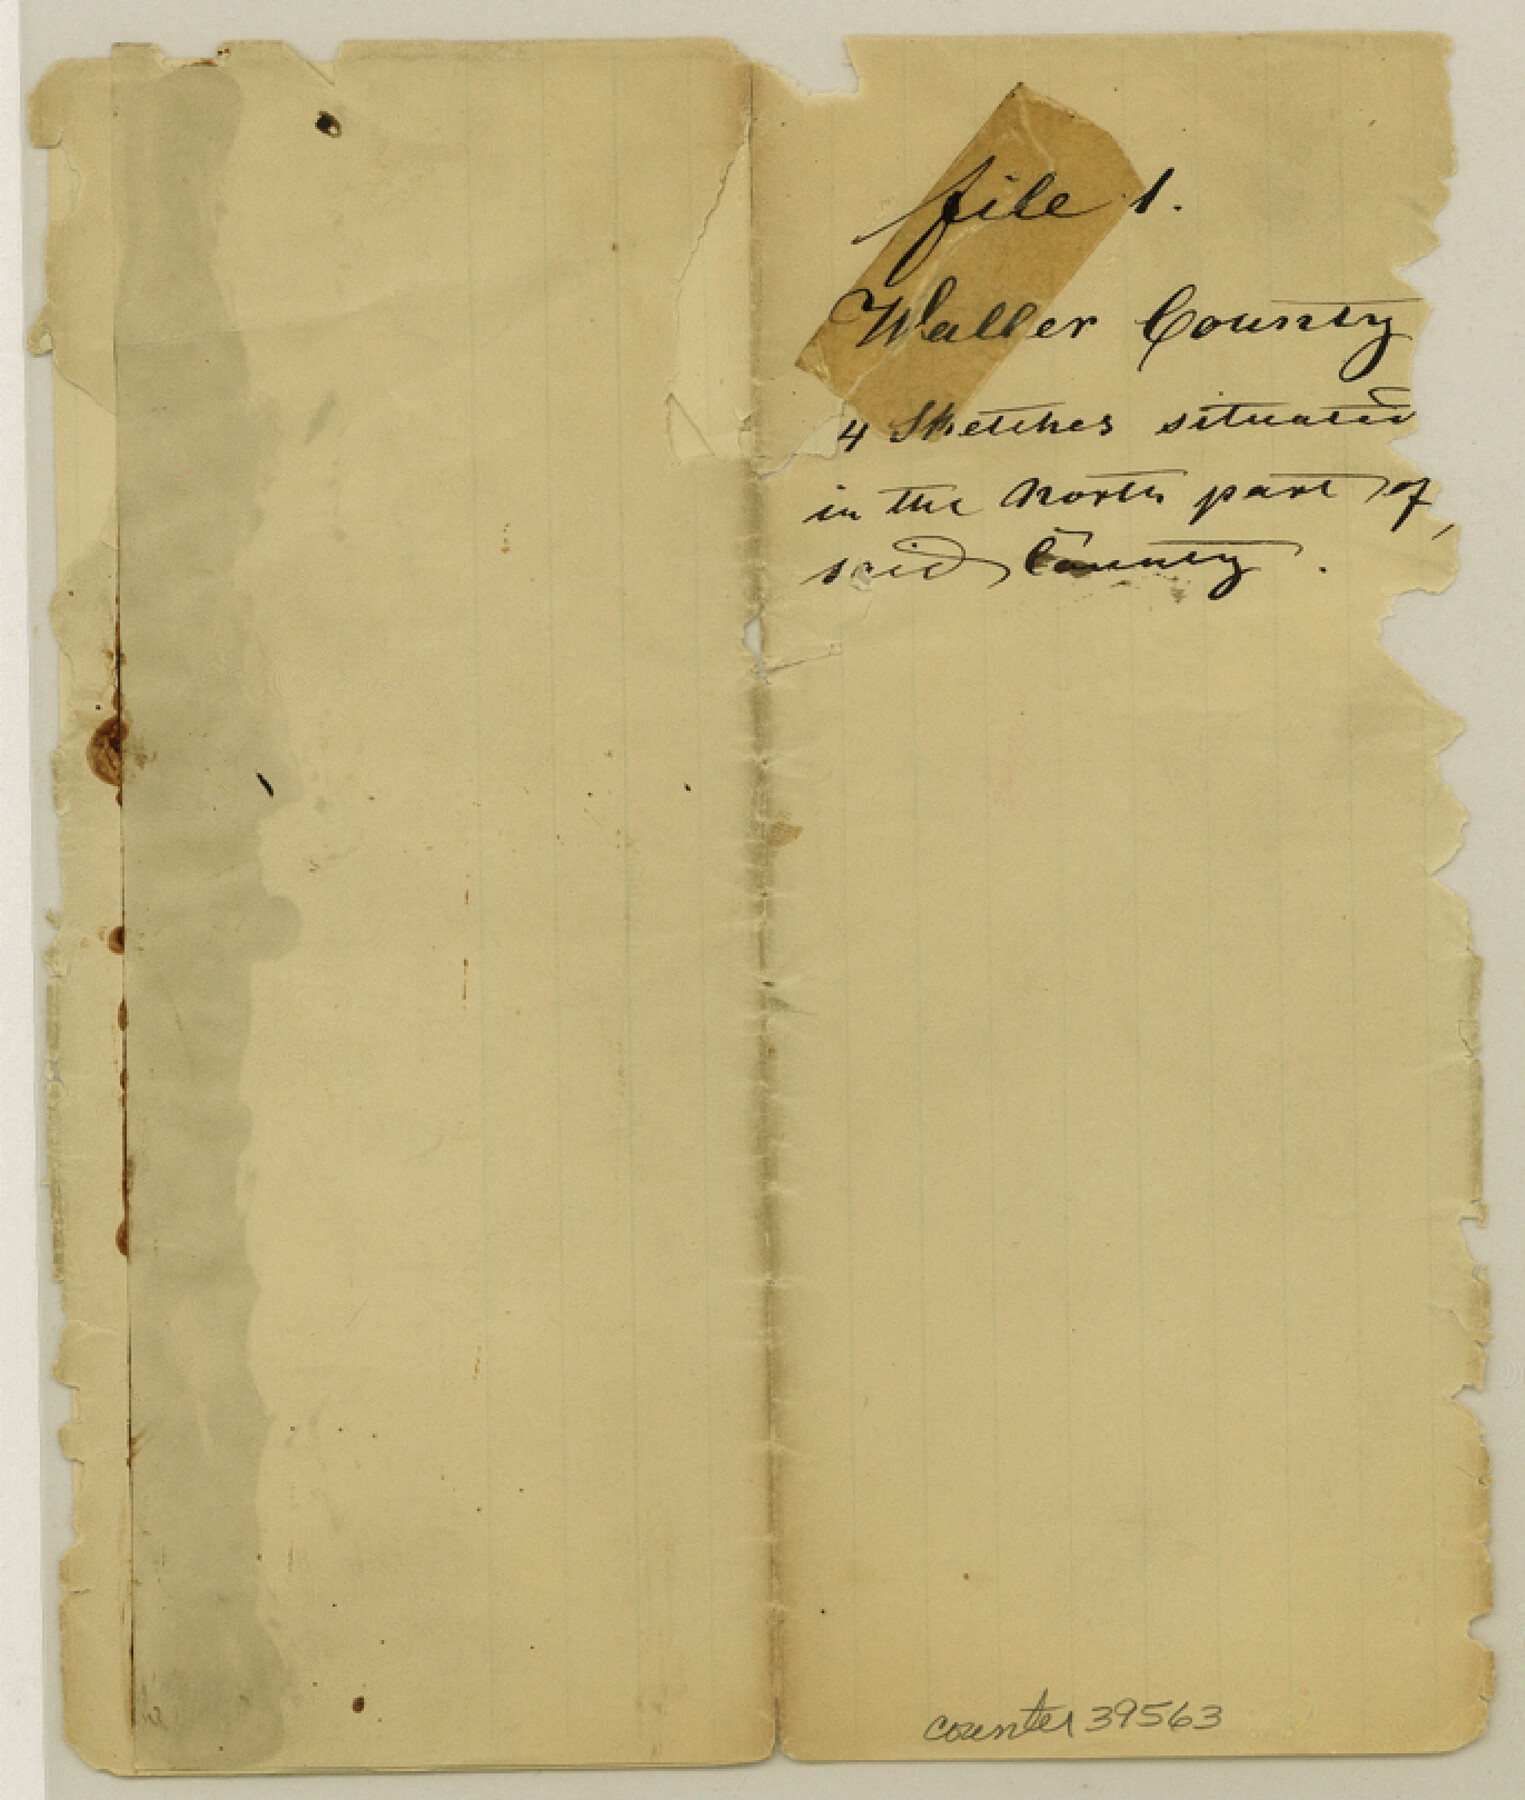 file 1.
Waller County
4 Sketches situated
in the North part of
said County.
counter 39563